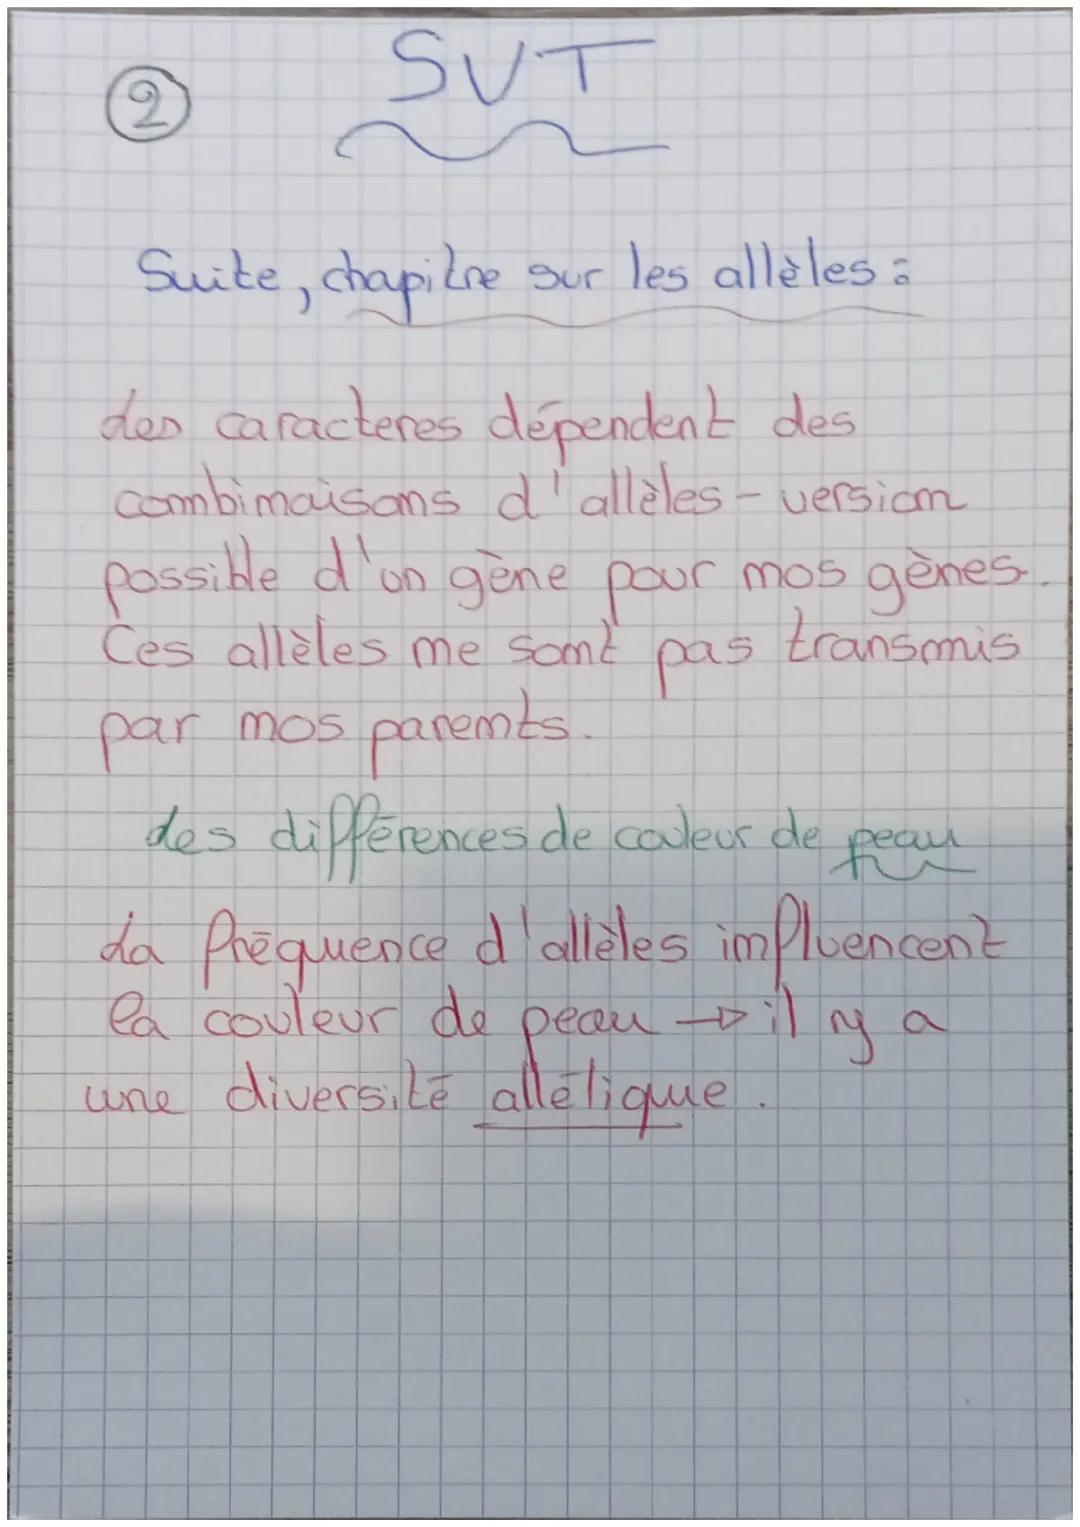 SVT
2
Suite, chapitre sur les allèles :
des caracteres dépendent des
combinaisons d'allèles - version
possible d'un gène pour nos gènes.
Ces allèles ne sont pas transmis
par nos parents.
des différences de couleur de peau
La fréquence d'allèles influencent
la couleur de peau → il y a
une diversité allélique.